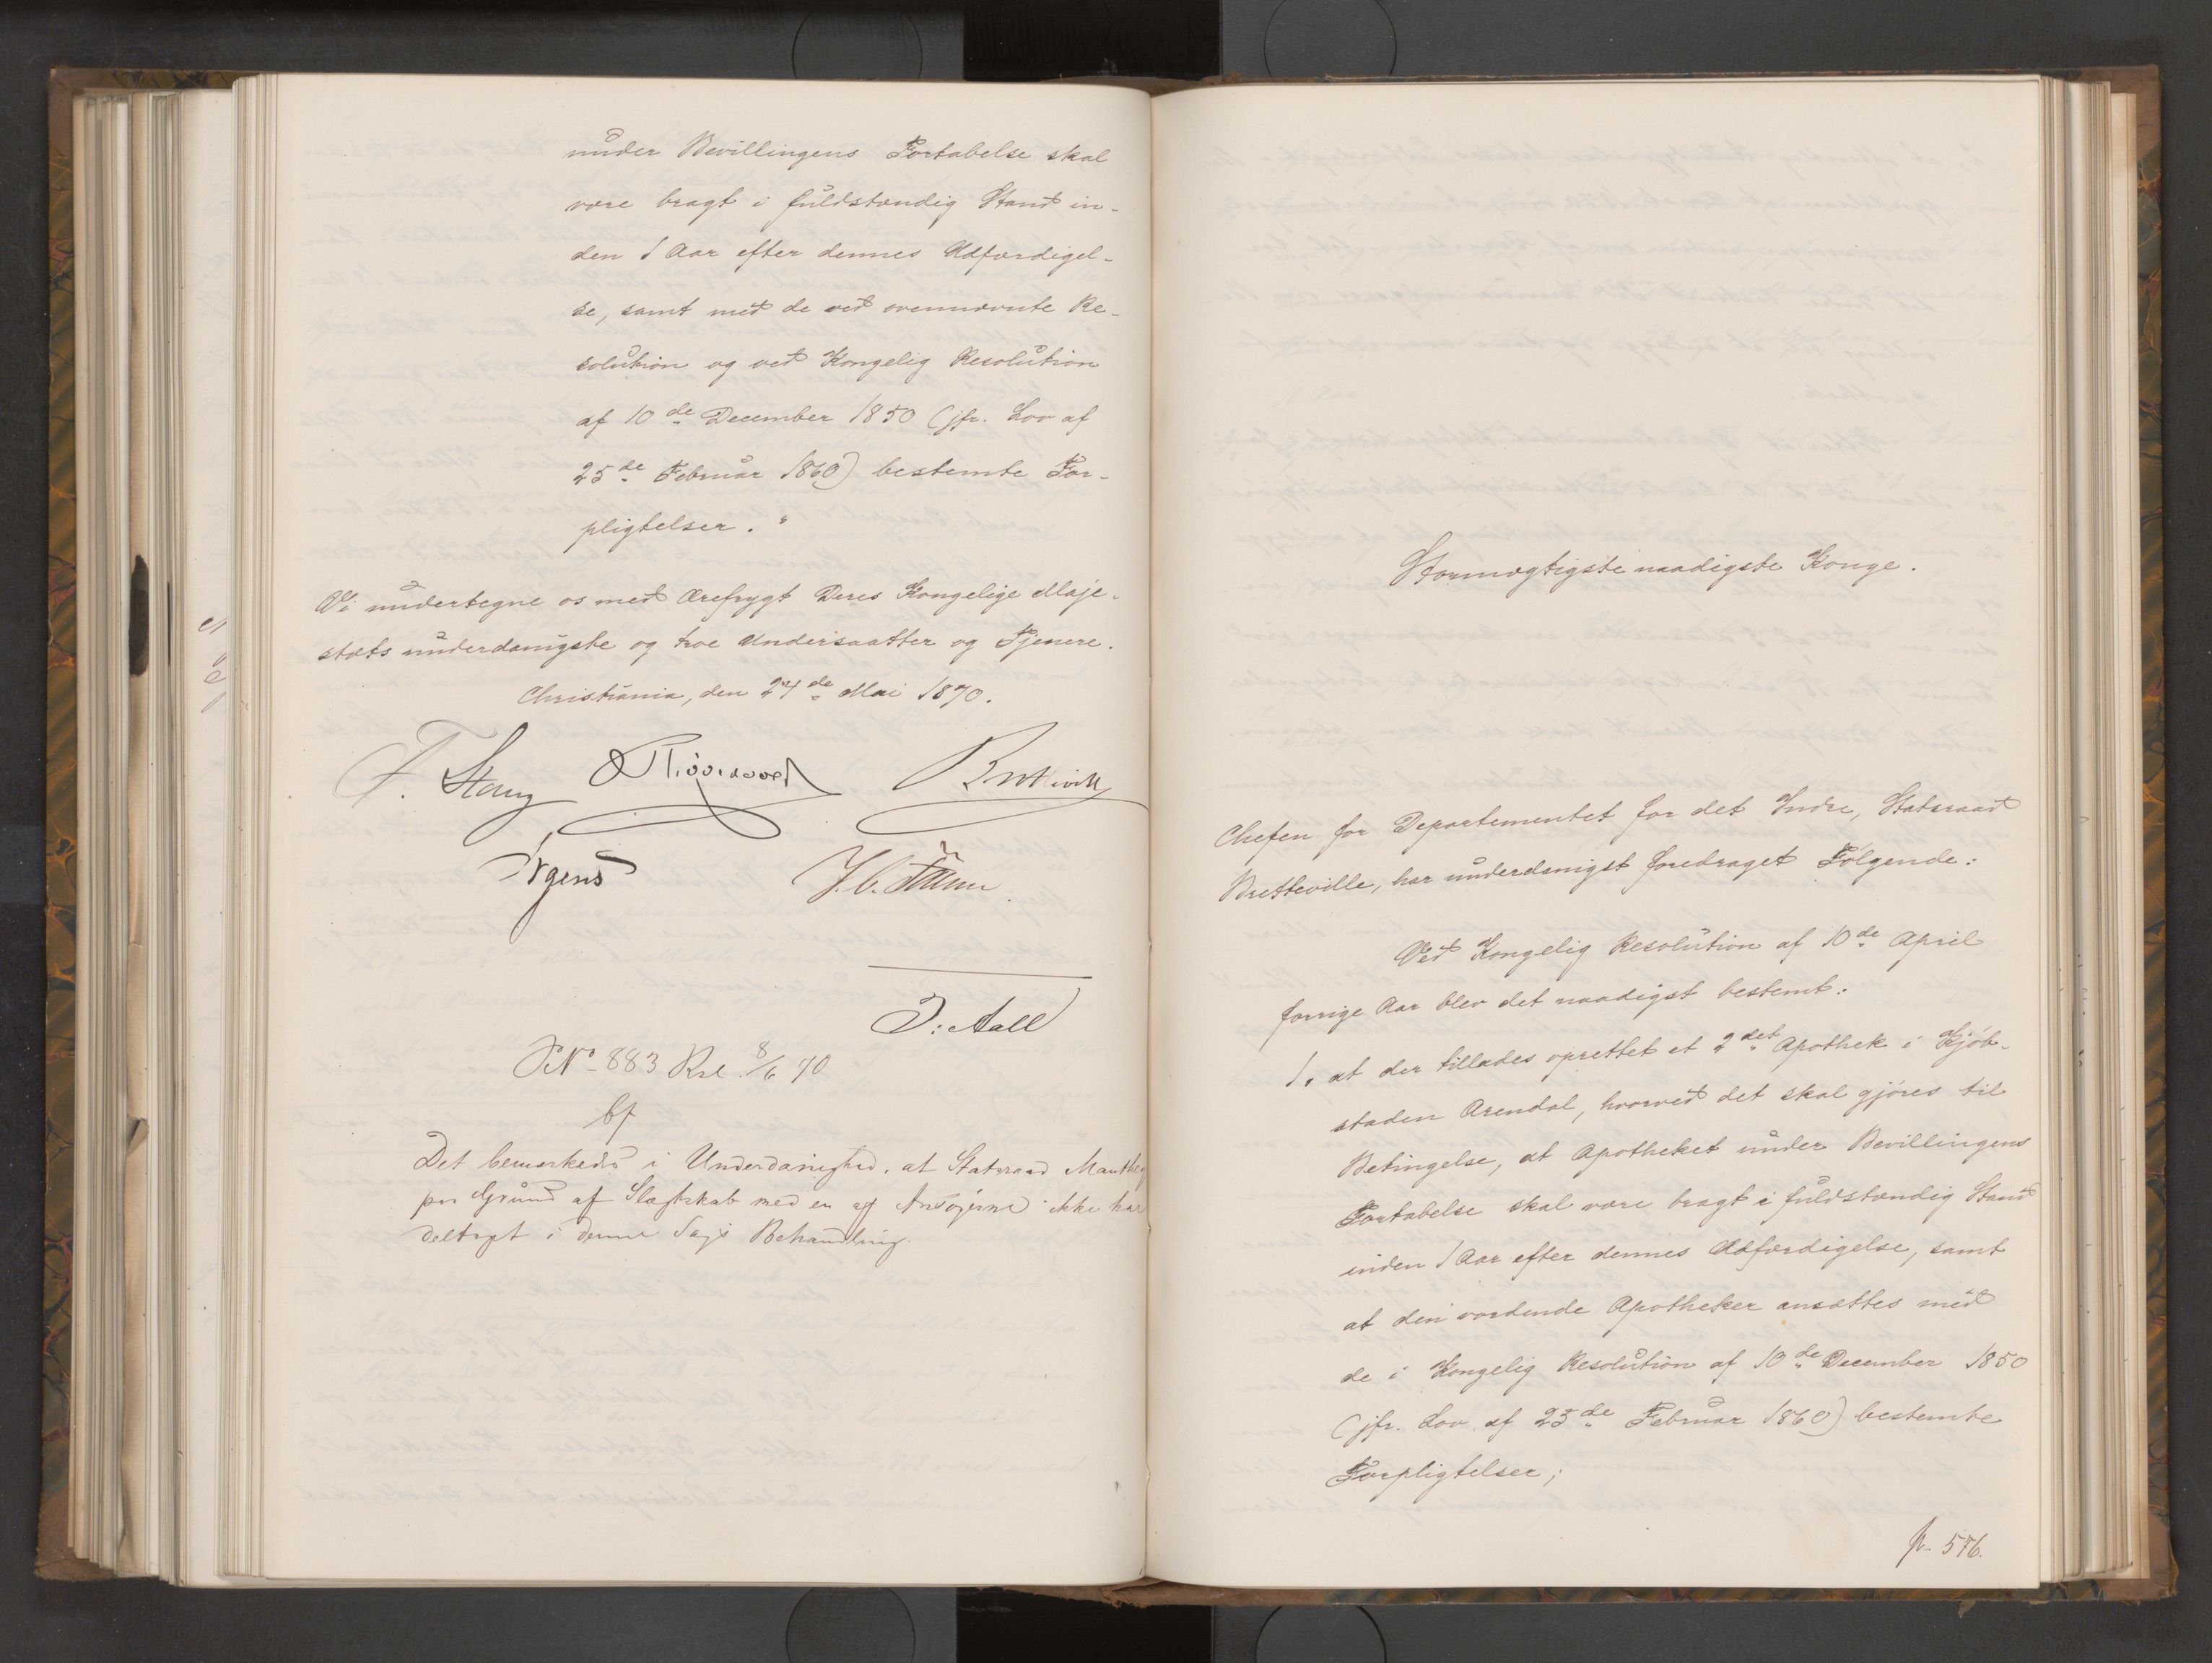 under Bevillingens Fortabelse skal
være bragt i fuldstændig Stand in-
den 1 Aar efter dennes Udfærdigel-
se, samt med de ved ovennævnte Re-
solution og ved Kongelig Resolution
af 10de December 1850 (jfr. Lov af
25de Februar 1860) bestemte For-
pligtelser. "
Vi undertegne os med Ærefrygt Deres Kongelige Maje-
stæts underdanigste og troe Undersaatter og Tjenere.
Christiania, den 24de Mai 1870.
F. Stang Bretteville
Irgens J. C. Falsen
J: Aall
No 883 Rsl 8/6 70
bf
Det bemærkedes i Underdanighed, at Statsraad Manthey
paa Grund af Slægtskab med en af Ansøgerne ikke har
deltaget i denne Sags Behandling.
Stormægtigste naadigste Konge.
Chefen for Departementet for det Indre, Statsraad
Bretteville, har underdanigst foredraget Følgende:
Ved Kongelig Resolution af 10de April
forrige Aar blev det naadigst bestemt:
1. at der tillades oprettet et 2det Apothek i Kjøb-
staden Arendal, hvorved det skal gjøres til
Betingelse, at Apotheket under Bevillingens
Fortabelse skal være bragt i fuldstændig Stand
inden 1 Aar efter dennes Udfærdigelse, samt
at den vordende Apotheker ansættes med
de i Kongelig Resolution af 10de December 1850
(jfr. Lov af 25de Februar 1860) bestemte
Forpligtelser;
p. 576.